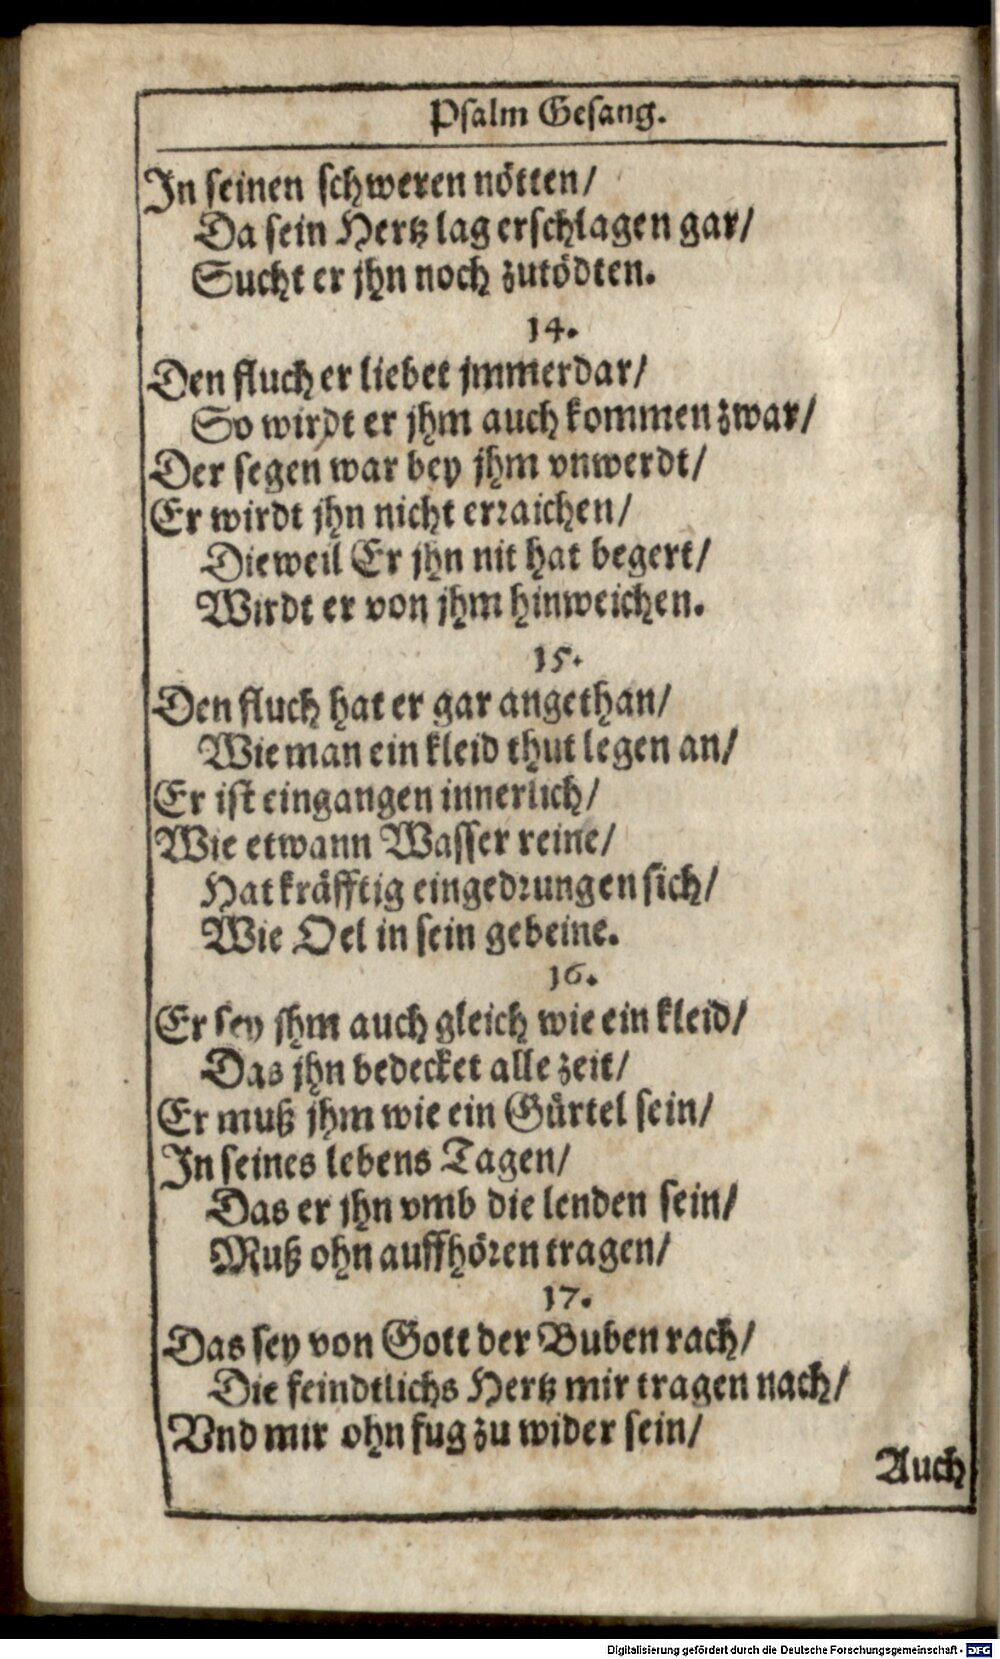 Psalm Gesang.
In seinen schweren nötten/
Da sein Hertz lag erschlagen gar/
Sucht er jhn noch zutödten.
14.
Den fluch er liebet jmmerdar/
So wirdt er jhm auch kommen zwar/
Der segen war bey jhm vnwerdt/
Er wirdt jhn nicht erraichen/
Dieweil Er jhn nit hat begert/
Wirdt er von jhm hinweichen.
15.
Den fluch hat er gar angethan/
Wie man ein kleid thut legen an/
Er ist eingangen innerlich/
Wie etwann Wasser reine/
Hat kräfftig eingedrungen sich/
Wie Oel in sein gebeine.
16.
Er sey jhm auch gleich wie ein kleid/
Das jhn bedecket alle zeit/
Er muß jhm wie ein Gürtel sein/
In seines lebens Tagen/
Das er jhn vmb die lenden sein/
Muß ohn auffhören tragen/
17.
Das sey von Gott der Buben rach/
Die feindtlichs Hertz mir tragen nach/
Vnd mir ohn fug zu wider sein/
Auch
Digitalisierung gefördert durch die Deutsche Forschungsgemeinschaft - DFG